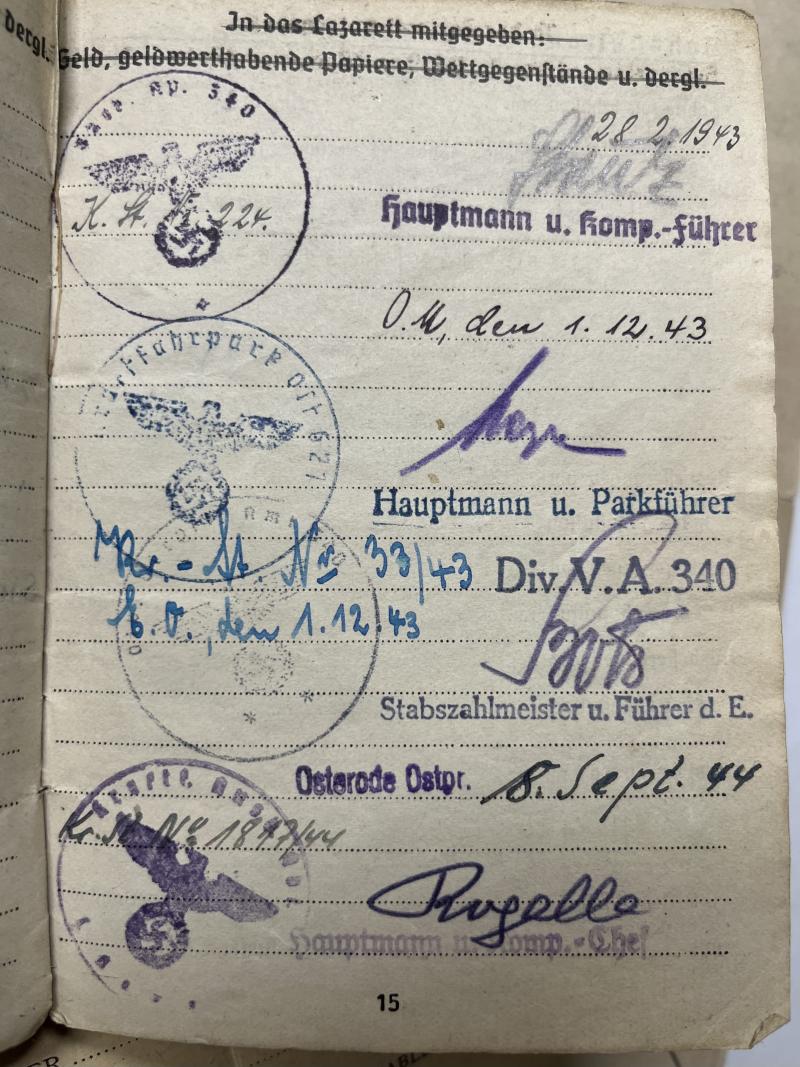 dergl.
In das Lazarett mitgegeben:
Geld, geldwerthabende Papiere, Wertgegenstände u. dergl.
340
28 2. 1943
K. St. Nr. 224.
Hauptmann u. Komp.-Führer
O.U., den 1. 12. 43
Kraftfahrpark Ost 621
Hauptmann u. Parkführer
Kr.-St. Nr 33/43
Div. V. A. 340
E.O., den 1. 12. 43
Stabszahlmeister u. Führer d. E.
Osterode Ostpr. 18. Sept. 44
Kr. St. No 1877/44
Rogalla
Hauptmann u. Komp.-Chef
15